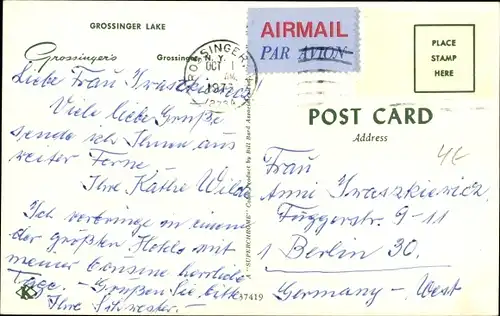 GROSSINGER LAKE
Grossinger's Grossinger, N. Y.
Liebe Frau Iwaszkiewicz!
Viele liebe Grüße
sende ich Ihnen aus
weiter Ferne
Ihre Käthe Wilde
Ich verbringe in einem
der größten Hotels mit
meiner Cousine herrliche
Tage. - Grüßen Sie bitte
Ihre Schwester. -
K
"SUPERCHROME"
37419
GROSSINGER, N.Y.
OCT 1
AM
AIRMAIL
PAR AVION
PLACE
STAMP
HERE
POST CARD
Address
4E
Frau
Anni Iwaszkiewicz
Fuggerstr. 9-11
1 Berlin 30.
Germany - West